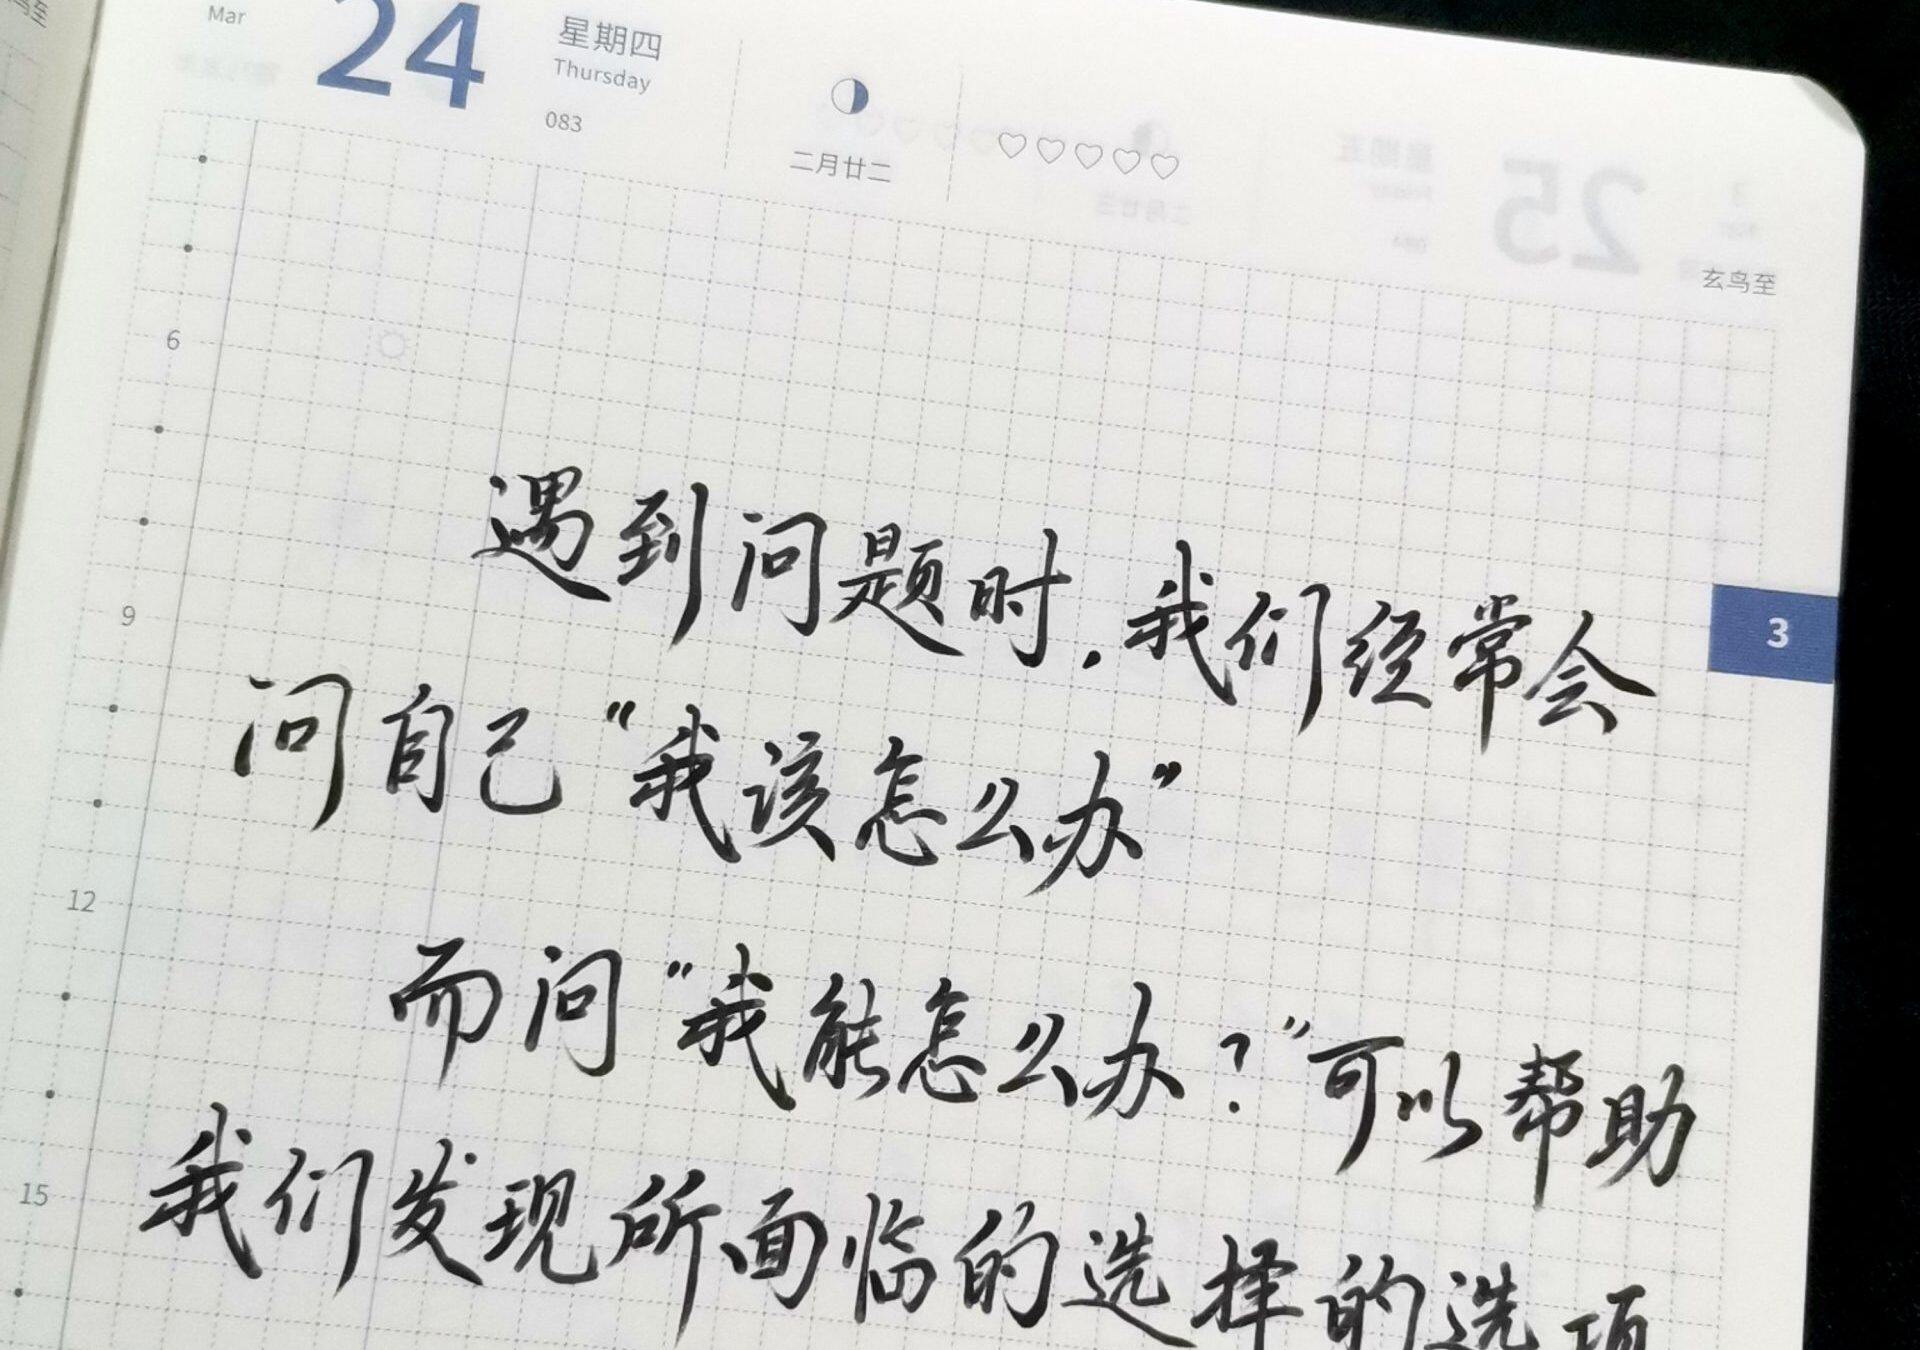 Mar
24
星期四
Thursday
083
二月廿二
玄鸟至
6
遇到问题时，我们经常会
9
3
问自己“我该怎么办”
12
而问“我能怎么办？”可以帮助
15
我们发现所面临的选择的选项